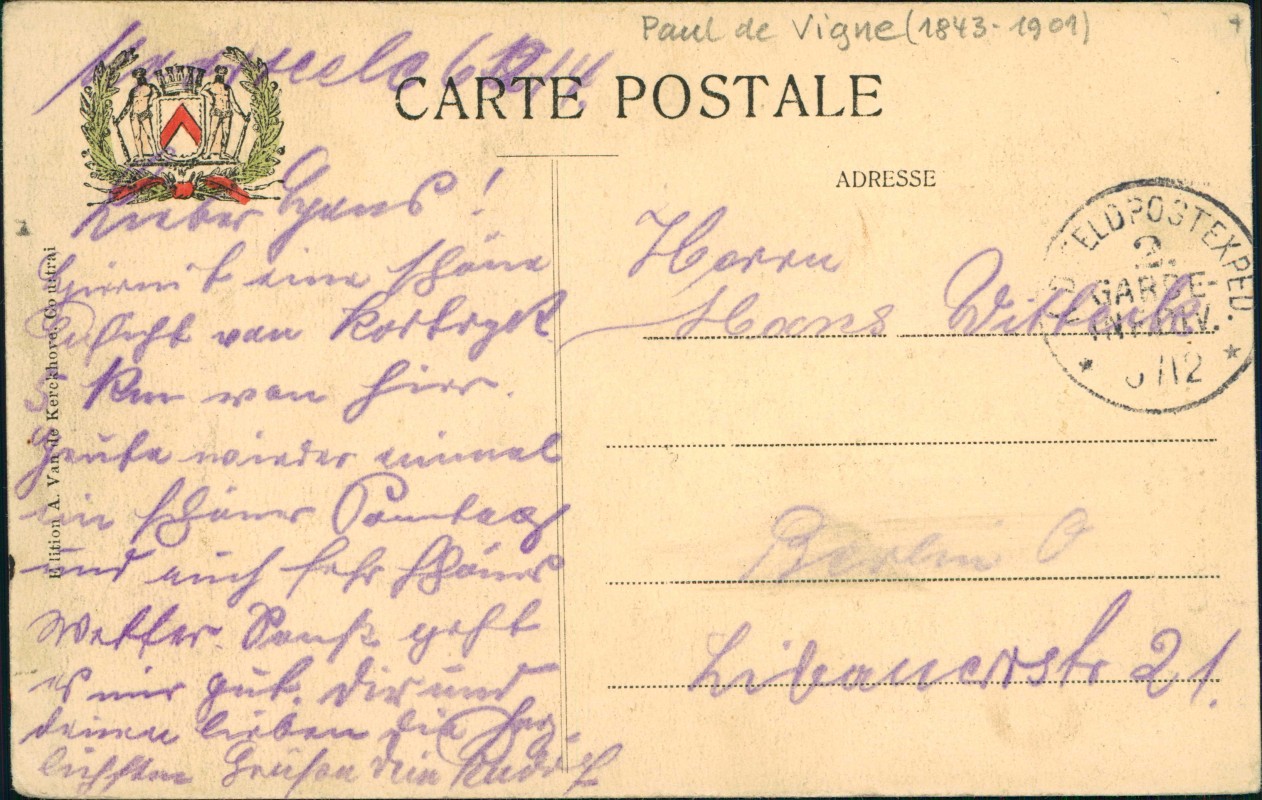 Paul de Vigne (1843-1901)
CARTE POSTALE
ADRESSE
Edition A. Van de Kerckhove, Courtrai
Lieber Hans!
Hiermit eine schöne
Ansicht von Kortryk
5 Km von hier.
Heute wieder einmal
ein schöner Sonntag
und auch sehr schönes
Wetter. Sonst geht
es mir gut. Dir und
deinen lieben die herz-
lichsten Grüße dein Rudolf
Herrn
Hans
Berlin O
Libauerstr 21.
FELDPOSTEXPED.
2.
GARDE-
INF. DIV.
/12